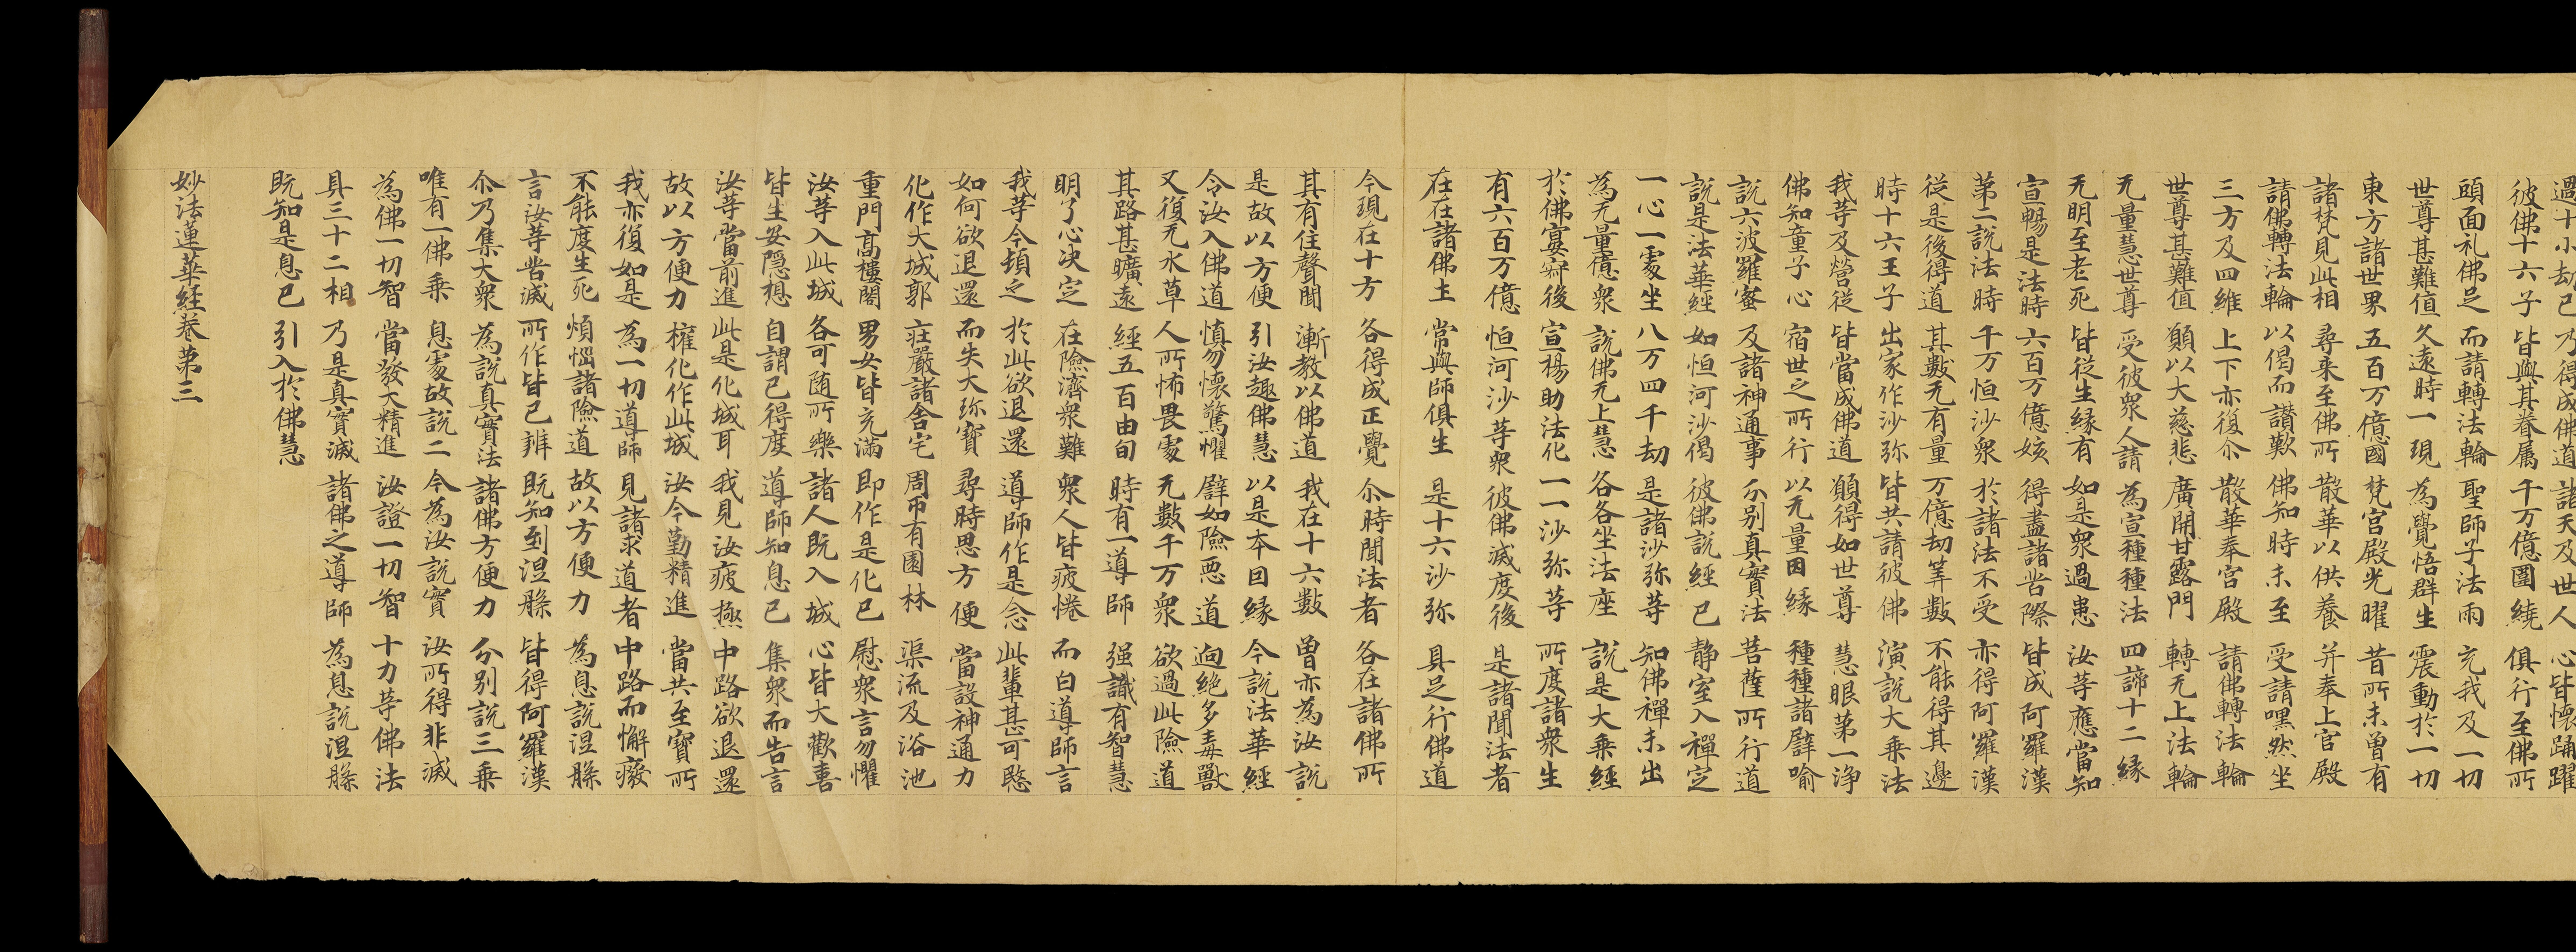 過十小劫已 乃得成佛道 諸天及世人 心皆懷踊躍
彼佛十六子 皆與其眷属 千万億圍繞 俱行至佛所
頭面礼佛足 而請轉法輪 聖師子法雨 充我及一切
世尊甚難值 久遠時一現 為覺悟群生 震動於一切
東方諸世界 五百万億國 梵宮殿光曜 昔所未曾有
諸梵見此相 尋来至佛所 散華以供養 并奉上宮殿
請佛轉法輪 以偈而讃歎 佛知時未至 受請嘿然坐
三方及四維 上下亦復尒 散華奉宮殿 請佛轉法輪
世尊甚難值 願以大慈悲 廣開甘露門 轉无上法輪
无量慧世尊 受彼衆人請 為宣種種法 四諦十二縁
无明至老死 皆従生縁有 如是衆過患 汝等應當知
宣暢是法時 六百万億姟 得盡諸苦際 皆成阿羅漢
第二說法時 千万恒沙衆 於諸法不受 亦得阿羅漢
従是後得道 其數无有量 万億劫筭數 不能得其邊
時十六王子 出家作沙弥 皆共請彼佛 演說大乗法
我等及營従 皆當成佛道 願得如世尊 慧眼第一浄
佛知童子心 宿世之所行 以无量因縁 種種諸譬喻
說六波羅蜜 及諸神通事 分別真實法 菩薩所行道
說是法華經 如恒河沙偈 彼佛說經已 静室入禪定
一心一處坐 八万四千劫 是諸沙弥等 知佛禪未出
為无量億衆 說佛无上慧 各各坐法座 說是大乗經
於佛宴寂後 宣楊助法化 一一沙弥等 所度諸衆生
有六百万億 恒河沙等衆 彼佛滅度後 是諸聞法者
在在諸佛土 常與師俱生 是十六沙弥 具足行佛道
今現在十方 各得成正覺 尒時聞法者 各在諸佛所
其有住聲聞 漸教以佛道 我在十六數 曽亦為汝說
是故以方便 引汝趣佛慧 以是本因縁 今說法華經
令汝入佛道 慎勿懷驚懼 譬如險悪道 逈絶多毒獸
又復无水草 人所怖畏處 无數千万衆 欲過此險道
其路甚曠遠 經五百由旬 時有一導師 强識有智慧
明了心决定 在險濟衆難 衆人皆疲惓 而白導師言
我等今頓乏 於此欲退還 導師作是念 此輩甚可愍
如何欲退還 而失大珎寶 尋時思方便 當設神通力
化作大城郭 莊嚴諸舍宅 周帀有園林 渠流及浴池
重門髙樓閣 男女皆充滿 即作是化已 慰衆言勿懼
汝等入此城 各可随所樂 諸人既入城 心皆大歡喜
皆生安隱想 自謂已得度 導師知息已 集衆而告言
汝等當前進 此是化城耳 我見汝疲極 中路欲退還
故以方便力 權化作此城 汝今勤精進 當共至寶所
我亦復如是 為一切導師 見諸求道者 中路而懈癈
不能度生死 煩惱諸險道 故以方便力 為息說涅槃
言汝等苦滅 所作皆已辦 既知到涅槃 皆得阿羅漢
尒乃集大衆 為說真實法 諸佛方便力 分別說三乗
唯有一佛乗 息處故說二 今為汝說實 汝所得非滅
為佛一切智 當發大精進 汝證一切智 十力等佛法
具三十二相 乃是真實滅 諸佛之導師 為息說涅槃
既知是息已 引入於佛慧
妙法蓮華經卷第三